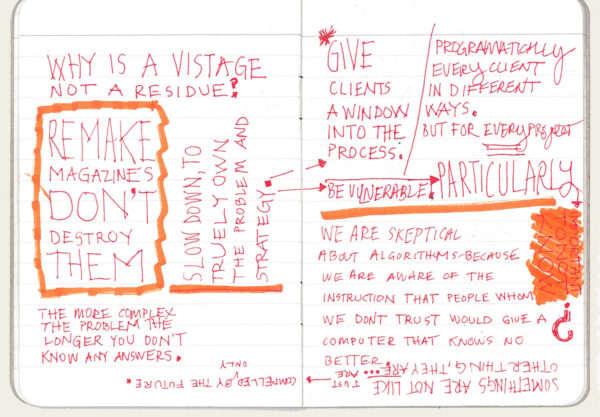 WHY IS A VISTAGE
NOT A RESIDUE?
REMAKE
MAGAZINE'S
DON'T
DESTROY
THEM
SLOW DOWN, TO
TRUELY OWN
THE PROBLEM AND
STRATEGY.
THE MORE COMPLEX
THE PROBLEM THE
LONGER YOU DON'T
KNOW ANY ANSWERS.
*GIVE
CLIENTS
A WINDOW
INTO THE
PROCESS.
BE VULNERABLE.
PROGRAMATICALLY
EVERY CLIENT
IN DIFFERENT
WAYS.
BUT FOR EVERY PROJECT
PARTICULARLY
WE ARE SKEPTICAL
ABOUT ALGORITHMS-BECAUSE
WE ARE AWARE OF THE
INSTRUCTION THAT PEOPLE WHOM
WE DONT TRUST WOULD GIVE A
COMPUTER THAT KNOWS NO
BETTER.
?
SOMETHINGS ARE NOT LIKE
OTHER THING, THEY ARE...
JUST
ARE
COMPELLED, BY THE FUTURE.
ONLY